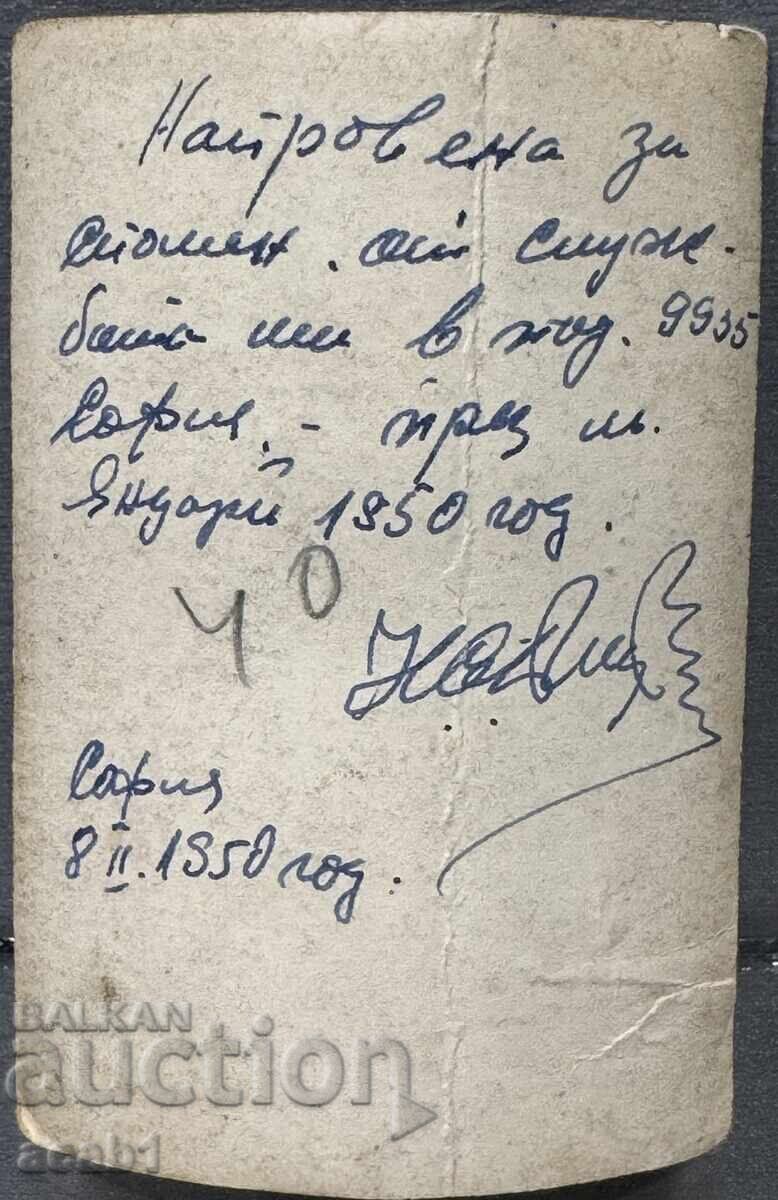 Направена за
спомен от служ-
бата ми в под. 9935
София, - през м.
Януарй 1950 год.
40
София
8 II. 1950 год.
BALKAN
auction
acab1